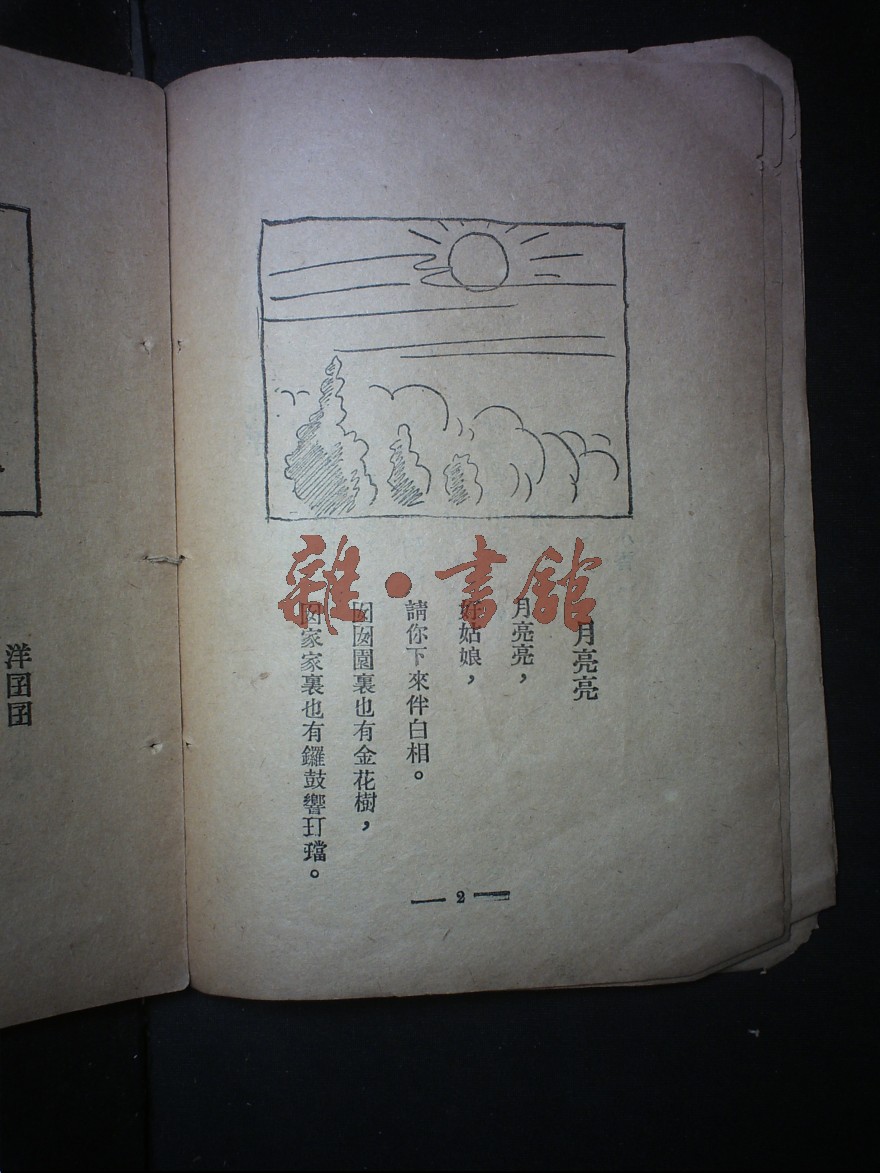 月亮亮
月亮亮，
好姑娘，
請你下來伴白相。
囡囡園裏也有金花樹，
囡家家裏也有鑼鼓響玎璫。
— 2 —
洋囝囝
雜·書館